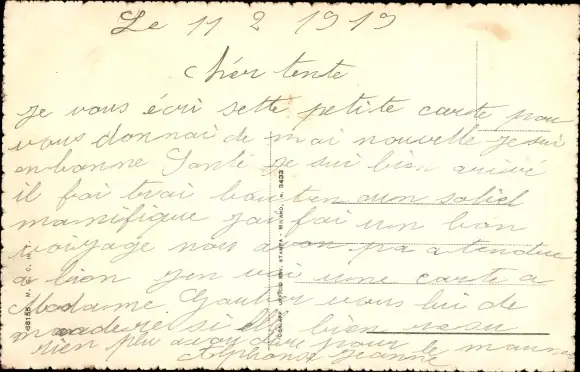 Le 11 2 1919
Chèr tente
je vous écri sette petite carte pou
vous donnai de mai nouvelle je sui
en bonne Santi je sui bien arrivé
il fai trai bau ten aum soliel
manifique jan fai un bon
voiyage nous avon pa atendu
a lion jen vai une carte a
Madame Gautier vous lui de
si elle bien resu
rien plu a vou dire pour le
Alphonse Jeanne